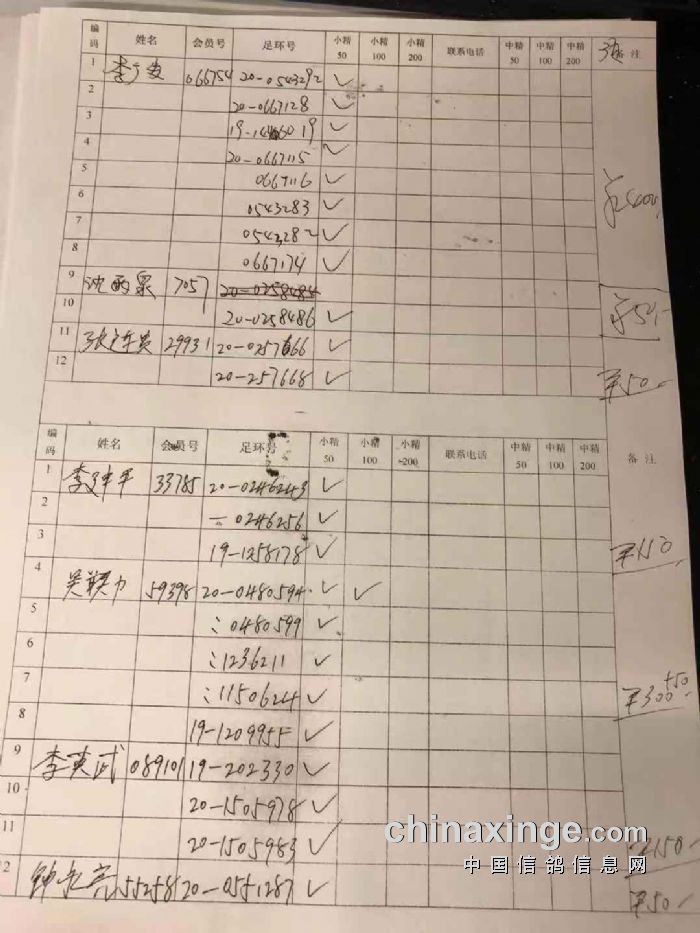 编码 姓名 会员号 足环号 小精50 小精100 小精200 联系电话 中精50 中精100 中精200 备注
1 066754 20-0543292 ✓
2 20-0667128 ✓
3 ✓
4 20-0667115 ✓
5 0667116 ✓
6 0543283 ✓
7 0543282 ✓
8 0667174 ✓
9 7057 20-0258484
10 20-0258486 ✓
11 29931 ✓
12 20-257668 ✓ ¥50.-
编码 姓名 会员号 足环号 小精50 小精100 小精200 联系电话 中精50 中精100 中精200 备注
1 33785 20-0246243 ✓
2 -0246256 ✓
3 19-1258178 ✓ ¥150
4 59398 20-0480594 ✓ ✓
5 :0480599 ✓
6 :1236211 ✓
7 :1150624 ✓ ¥300+50.
8 19-1209955 ✓
9 李英武 089101 19-202330 ✓
10 20-1505978 ✓
11 20-1505983 ✓ 150-
12 钟永亮 55258 20-0551287 ✓ ¥50.-
chinaxinge.com
中国信鸽信息网